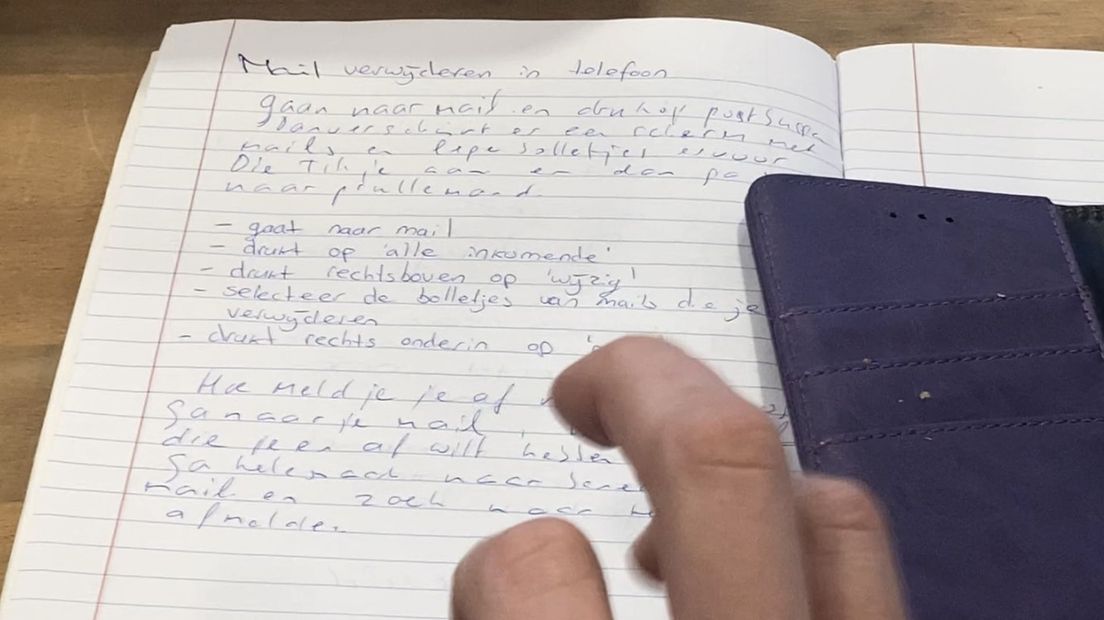 Mail verwijderen in telefoon
gaan naar mail en druk op
Dan verschijnt er een scherm met
mails en lege bolletjes ervoor
Die tik je aan en dan ga
naar prullemand.
- gaat naar mail
- drukt op 'alle inkomende'
- drukt rechtsboven op 'wijzig'
- selecteer de bolletjes van mails die je
verwijderen
- drukt rechts onderin op
Hoe meld je je af
Ga naar je mail,
die je er af wilt hebben
Ga helemaal naar
mail en zoek naar
afmelden